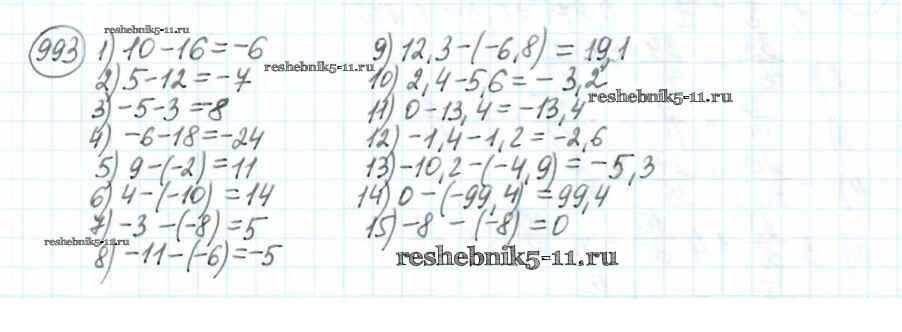 reshebnik5-11.ru
993 1) 10 - 16 = -6
2) 5 - 12 = -7
3) -5 - 3 = -8
4) -6 - 18 = -24
5) 9 - (-2) = 11
6) 4 - (-10) = 14
7) -3 - (-8) = 5
reshebnik5-11.ru
8) -11 - (-6) = -5
9) 12,3 - (-6,8) = 19,1
reshebnik5-11.ru
10) 2,4 - 5,6 = -3,2
reshebnik5-11.ru
11) 0 - 13,4 = -13,4
12) -1,4 - 1,2 = -2,6
13) -10,2 - (-4,9) = -5,3
14) 0 - (-99,4) = 99,4
15) -8 - (-8) = 0
reshebnik5-11.ru